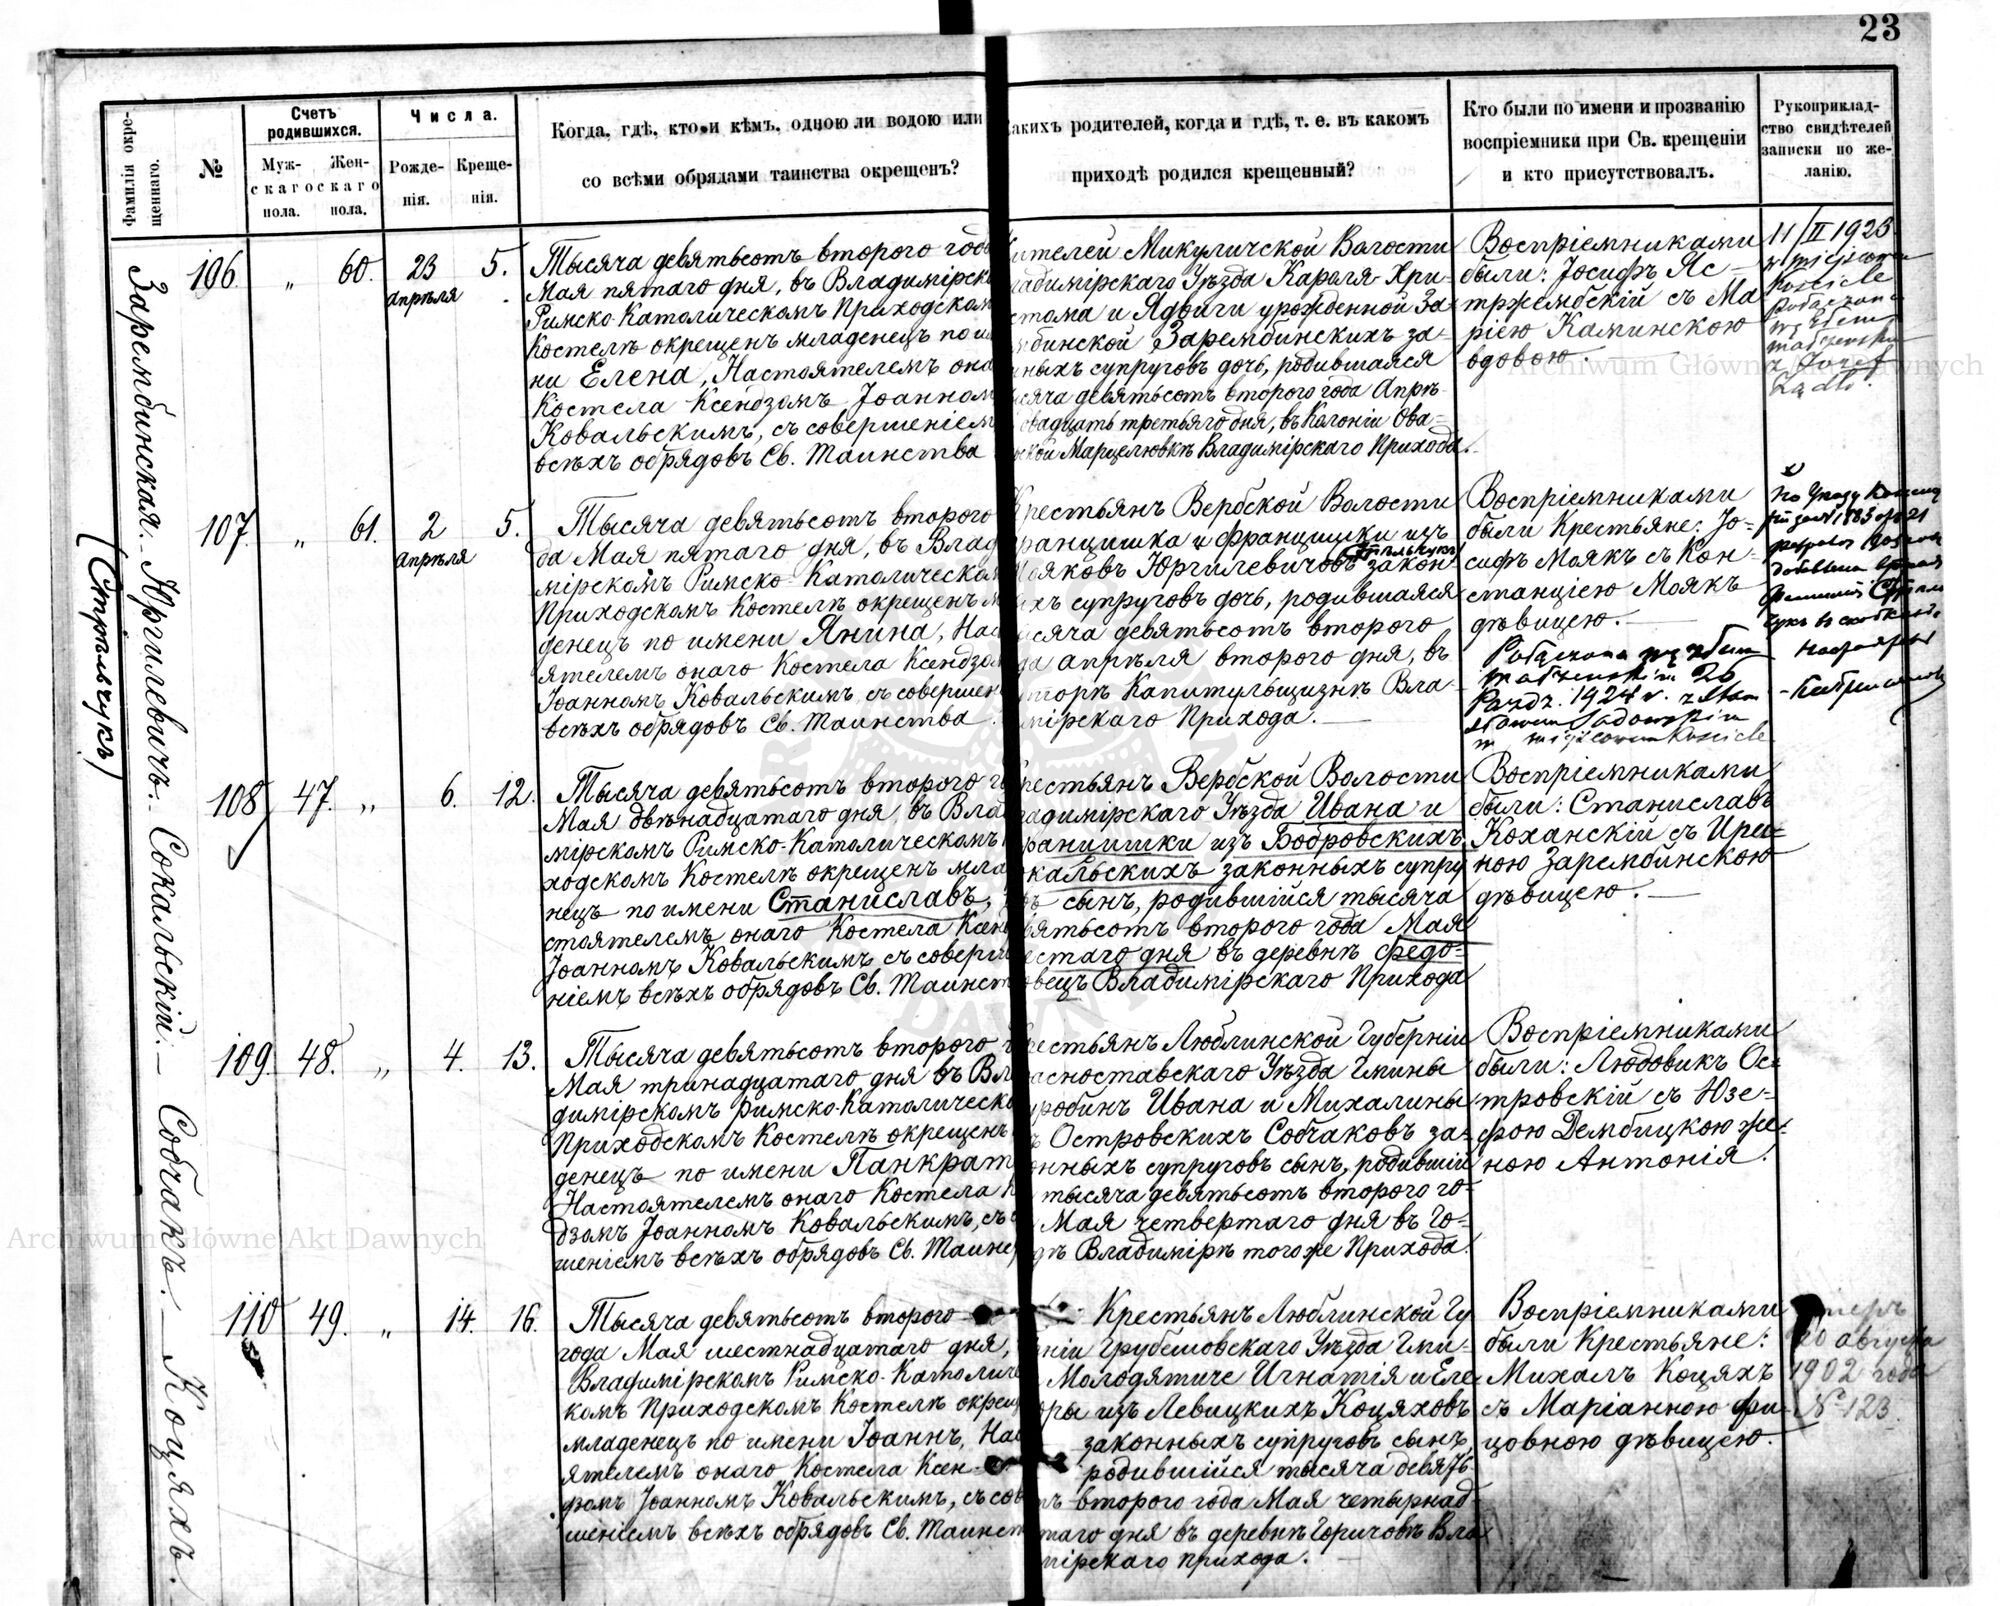 23
Фамилія окре-
щеннаго.
№
Счетъ
родившихся.
Муж-
скаго
пола.
Жен-
скаго
пола.
Числа.
Рожде-
нія.
Креще-
нія.
Когда, гдѣ, кто и кѣмъ, одною ли водою или
со всѣми обрядами таинства окрещенъ?
какихъ родителей, когда и гдѣ, т. е. въ какомъ
приходѣ родился крещенный?
Кто были по имени и прозванію
воспріемники при Св. крещеніи
и кто присутствовалъ.
Рукоприклад-
ство свидѣтелей
записки по же-
ланію.
Зарембинская. Юргилевичъ. Сокальскій. Собчакъ. Коцяхъ.
(Стрѣльчукъ)
106. " 60. 23 апрѣля 5.
Тысяча девятьсотъ второго года
Мая пятаго дня, въ Владимірско
Римско-Католическомъ Приходском
Костелѣ окрещенъ младенецъ по им
ни Елена, Настоятелемъ она
Костела Ксендзомъ Іоанном
Ковальскимъ, съ совершеніем
всѣхъ обрядовъ Св. Таинства
ителей Микуличской Волости
адимірскаго Уѣзда Кароля-Хри-
стома и Ядвиги урожденной За-
мбинской Зарембинскихъ за-
нныхъ супруговъ дочь, родившаяся
сяча девятьсотъ второго года Апрѣ-
вадцать третьяго дня, въ Колоніи Ова-
ской Марцелювкѣ Владимірскаго Прихода.
Воспріемниками
были: Іосифъ Яс-
тржембскій съ Ма-
ріею Каминскою
вдовою.
11/II 1923
w miejscowym
Kościele
Połączona
węzłem
małżeńskim
z Józef
Żądło.
107. " 61. 2 апрѣля 5.
Тысяча девятьсотъ второго
да Мая пятаго дня, въ Влад
мірскомъ Римско-Католическом
Приходскомъ Костелѣ окрещенъ м
денецъ по имени Янина, Нас
ятелемъ онаго Костела Ксендзом
Іоанномъ Ковальскимъ, съ совершен
всѣхъ обрядовъ Св. Таинства.
Крестьянъ Вербской Волости
ранцишка и Францишки изъ
Мояковъ Юргилевичовъ (Стрѣльчукъ) закон
ыхъ супруговъ дочь, родившаяся
ысяча девятьсотъ второго
да апрѣля второго дня, въ
уторѣ Капитульщизнѣ Вла-
мірскаго Прихода.
Воспріемниками
были Крестьяне: Іо-
сифъ Моякъ съ Кон-
станціею Моякъ
дѣвицею.
Połączona węzłem
małżeńskim 26
Paźdz. 1924 r. z Stan
isławem Sadowskim
w miejscowym Kościele
По Указу
1883
въ скобкахъ
108 47. " 6. 12.
Тысяча девятьсотъ второго го
Мая двѣнадцатаго дня, въ Влад
мірскомъ Римско-Католическомъ
ходскомъ Костелѣ окрещенъ мла
нецъ по имени Станиславъ,
стоятелемъ онаго Костела Ксенд
Іоанномъ Ковальскимъ, съ соверш
ніемъ всѣхъ обрядовъ Св. Таинст
рестьянъ Вербской Волости
адимірскаго Уѣзда Ивана и
ранцишки изъ Бобровскихъ
кальскихъ законныхъ супру
въ сынъ, родившійся тысяча
вятьсотъ второго года Мая
естаго дня въ деревнѣ Федо-
овецъ Владимірскаго Прихода
Воспріемниками
были: Станиславъ
Коханскій съ Ири-
ною Зарембинскою
дѣвицею.
109. 48. " 4. 13.
Тысяча девятьсотъ второго
Мая тринадцатаго дня въ Вла
димірскомъ Римско-Католическо
Приходскомъ Костелѣ окрещенъ
денецъ по имени Панкрат
Настоятелемъ онаго Костела К
дзомъ Іоанномъ Ковальскимъ, съ
шеніемъ всѣхъ обрядовъ Св. Таинс
естьянъ Люблинской Губерніи
асноставскаго Уѣзда Гмины
уробинъ Ивана и Михалины
ъ Островскихъ Собчаковъ за-
онныхъ супруговъ сынъ, родившій
тысяча девятьсотъ второго го-
Мая четвертаго дня въ Го-
дѣ Владимірѣ того же Прихода.
Воспріемниками
были: Людовикъ Ос-
тровскій съ Юзе-
фою Дембицкою же-
ною Антонія.
110 49. " 14. 16.
Тысяча девятьсотъ второго
года Мая шестнадцатаго дня,
Владимірскомъ Римско-Католиче
комъ Приходскомъ Костелѣ окрещ
младенецъ по имени Іоаннъ, Нас
ятелемъ онаго Костела Ксен-
дзомъ Іоанномъ Ковальскимъ, съ сов
шеніемъ всѣхъ обрядовъ Св. Таинст
Крестьянъ Люблинской Гу
рніи Грубешовскаго Уѣзда Гми-
Молодятиче Игнатія и Еле
оры изъ Левицкихъ Коцяховъ
законныхъ супруговъ сынъ,
родившійся тысяча девять
тъ второго года Мая четырнад-
таго дня въ деревнѣ Горичовѣ Вла
мірскаго прихода.
Воспріемниками
были Крестьяне:
Михалъ Коцяхъ
съ Маріанною Фи-
цовною дѣвицею.
умеръ
20 августа
1902 года
№ 123
Archiwum Główne Akt Dawnych
Archiwum Główne Akt Dawnych